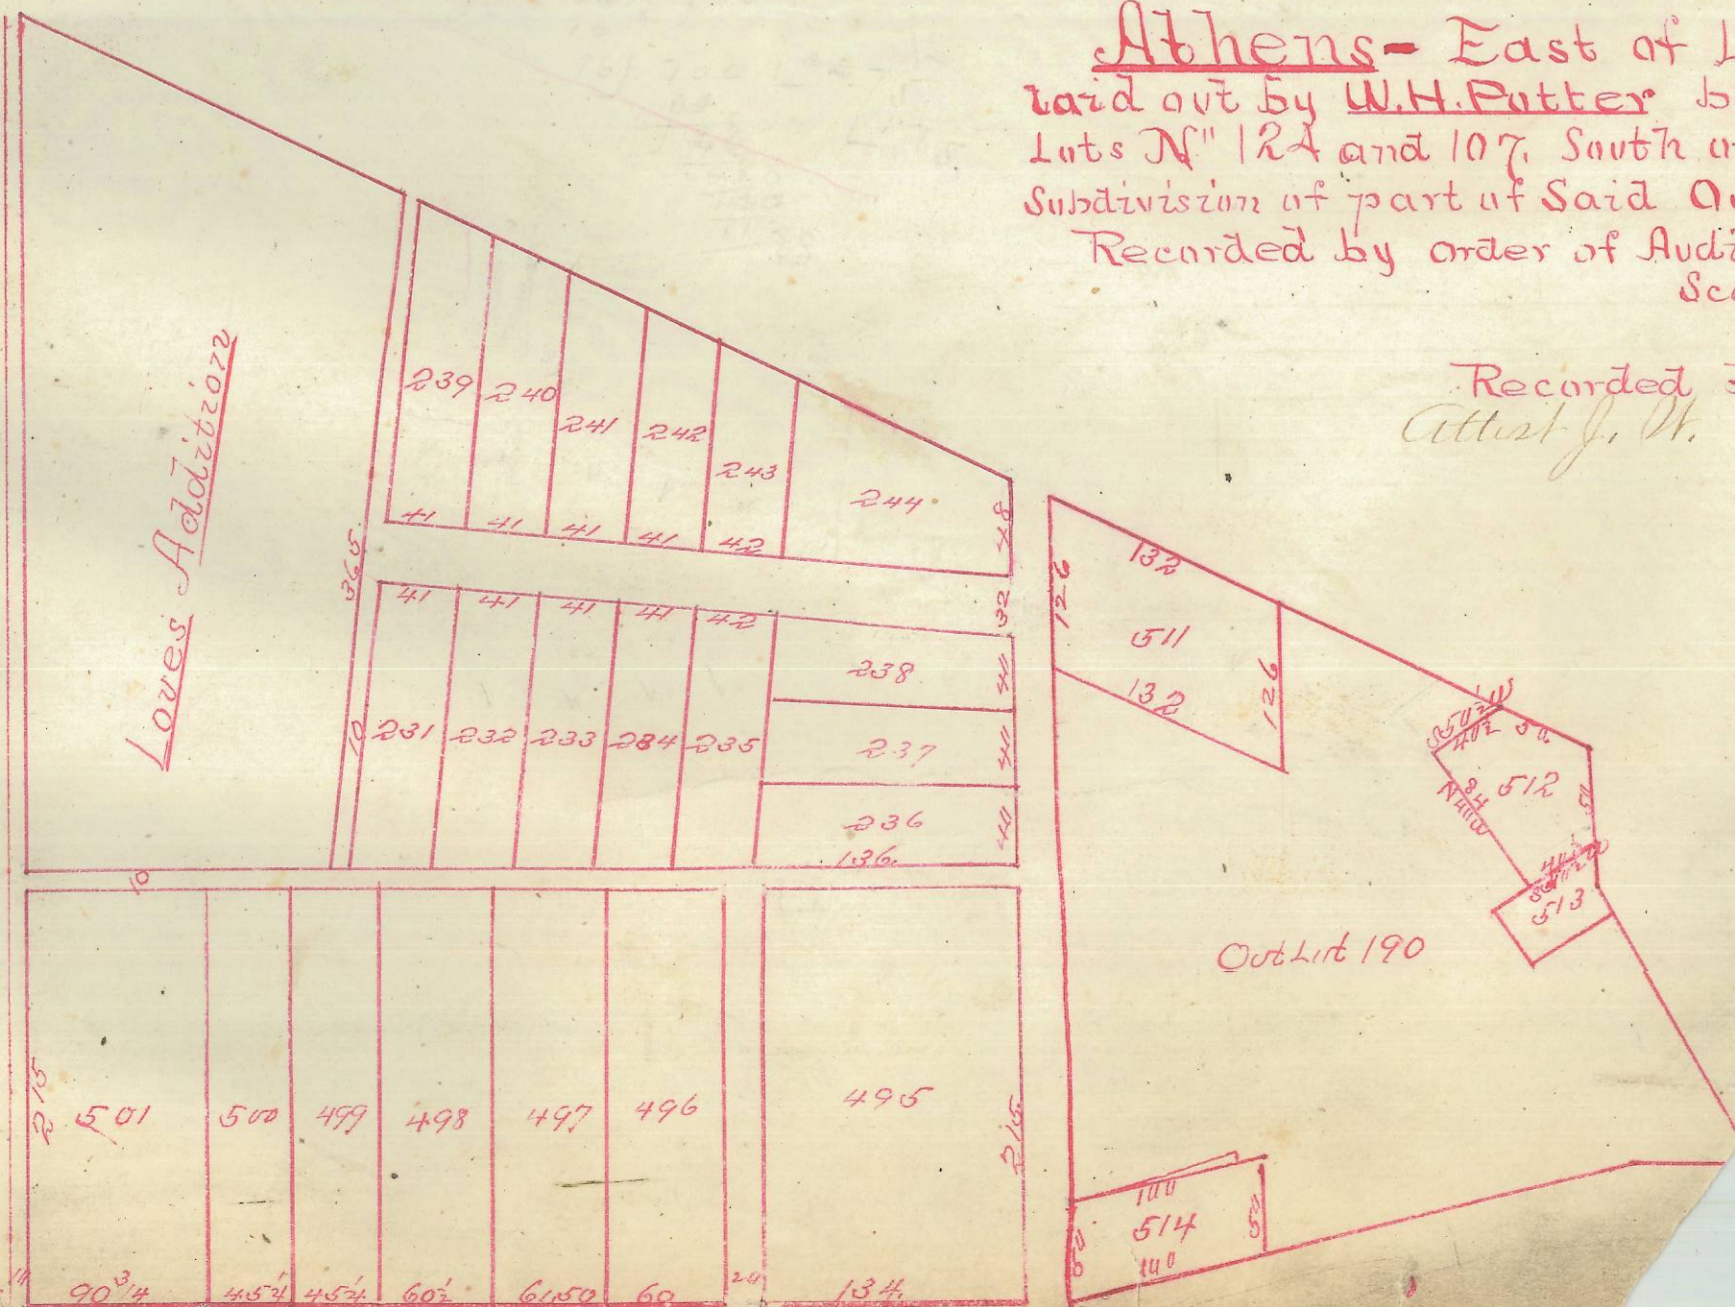 Athens - East of
laid out by W.H. Potter
Lots No 124 and 107, South of
Subdivision of part of Said
Recorded by order of
Recorded
Attest J. W.
Loves Addition
239
240
241
242
243
244
41
41
41
41
42
48
365
32
41
41
41
41
42
238
41
10
231
232
233
234
235
237
41
236
41
136
10
132
126
511
132
126
50
512
84
51
513
OutLot 190
215
501
500
499
498
497
496
495
215
100
514
50
50
140
90 3/4
45 1/4
45 1/4
60 1/2
61.50
60
20
134